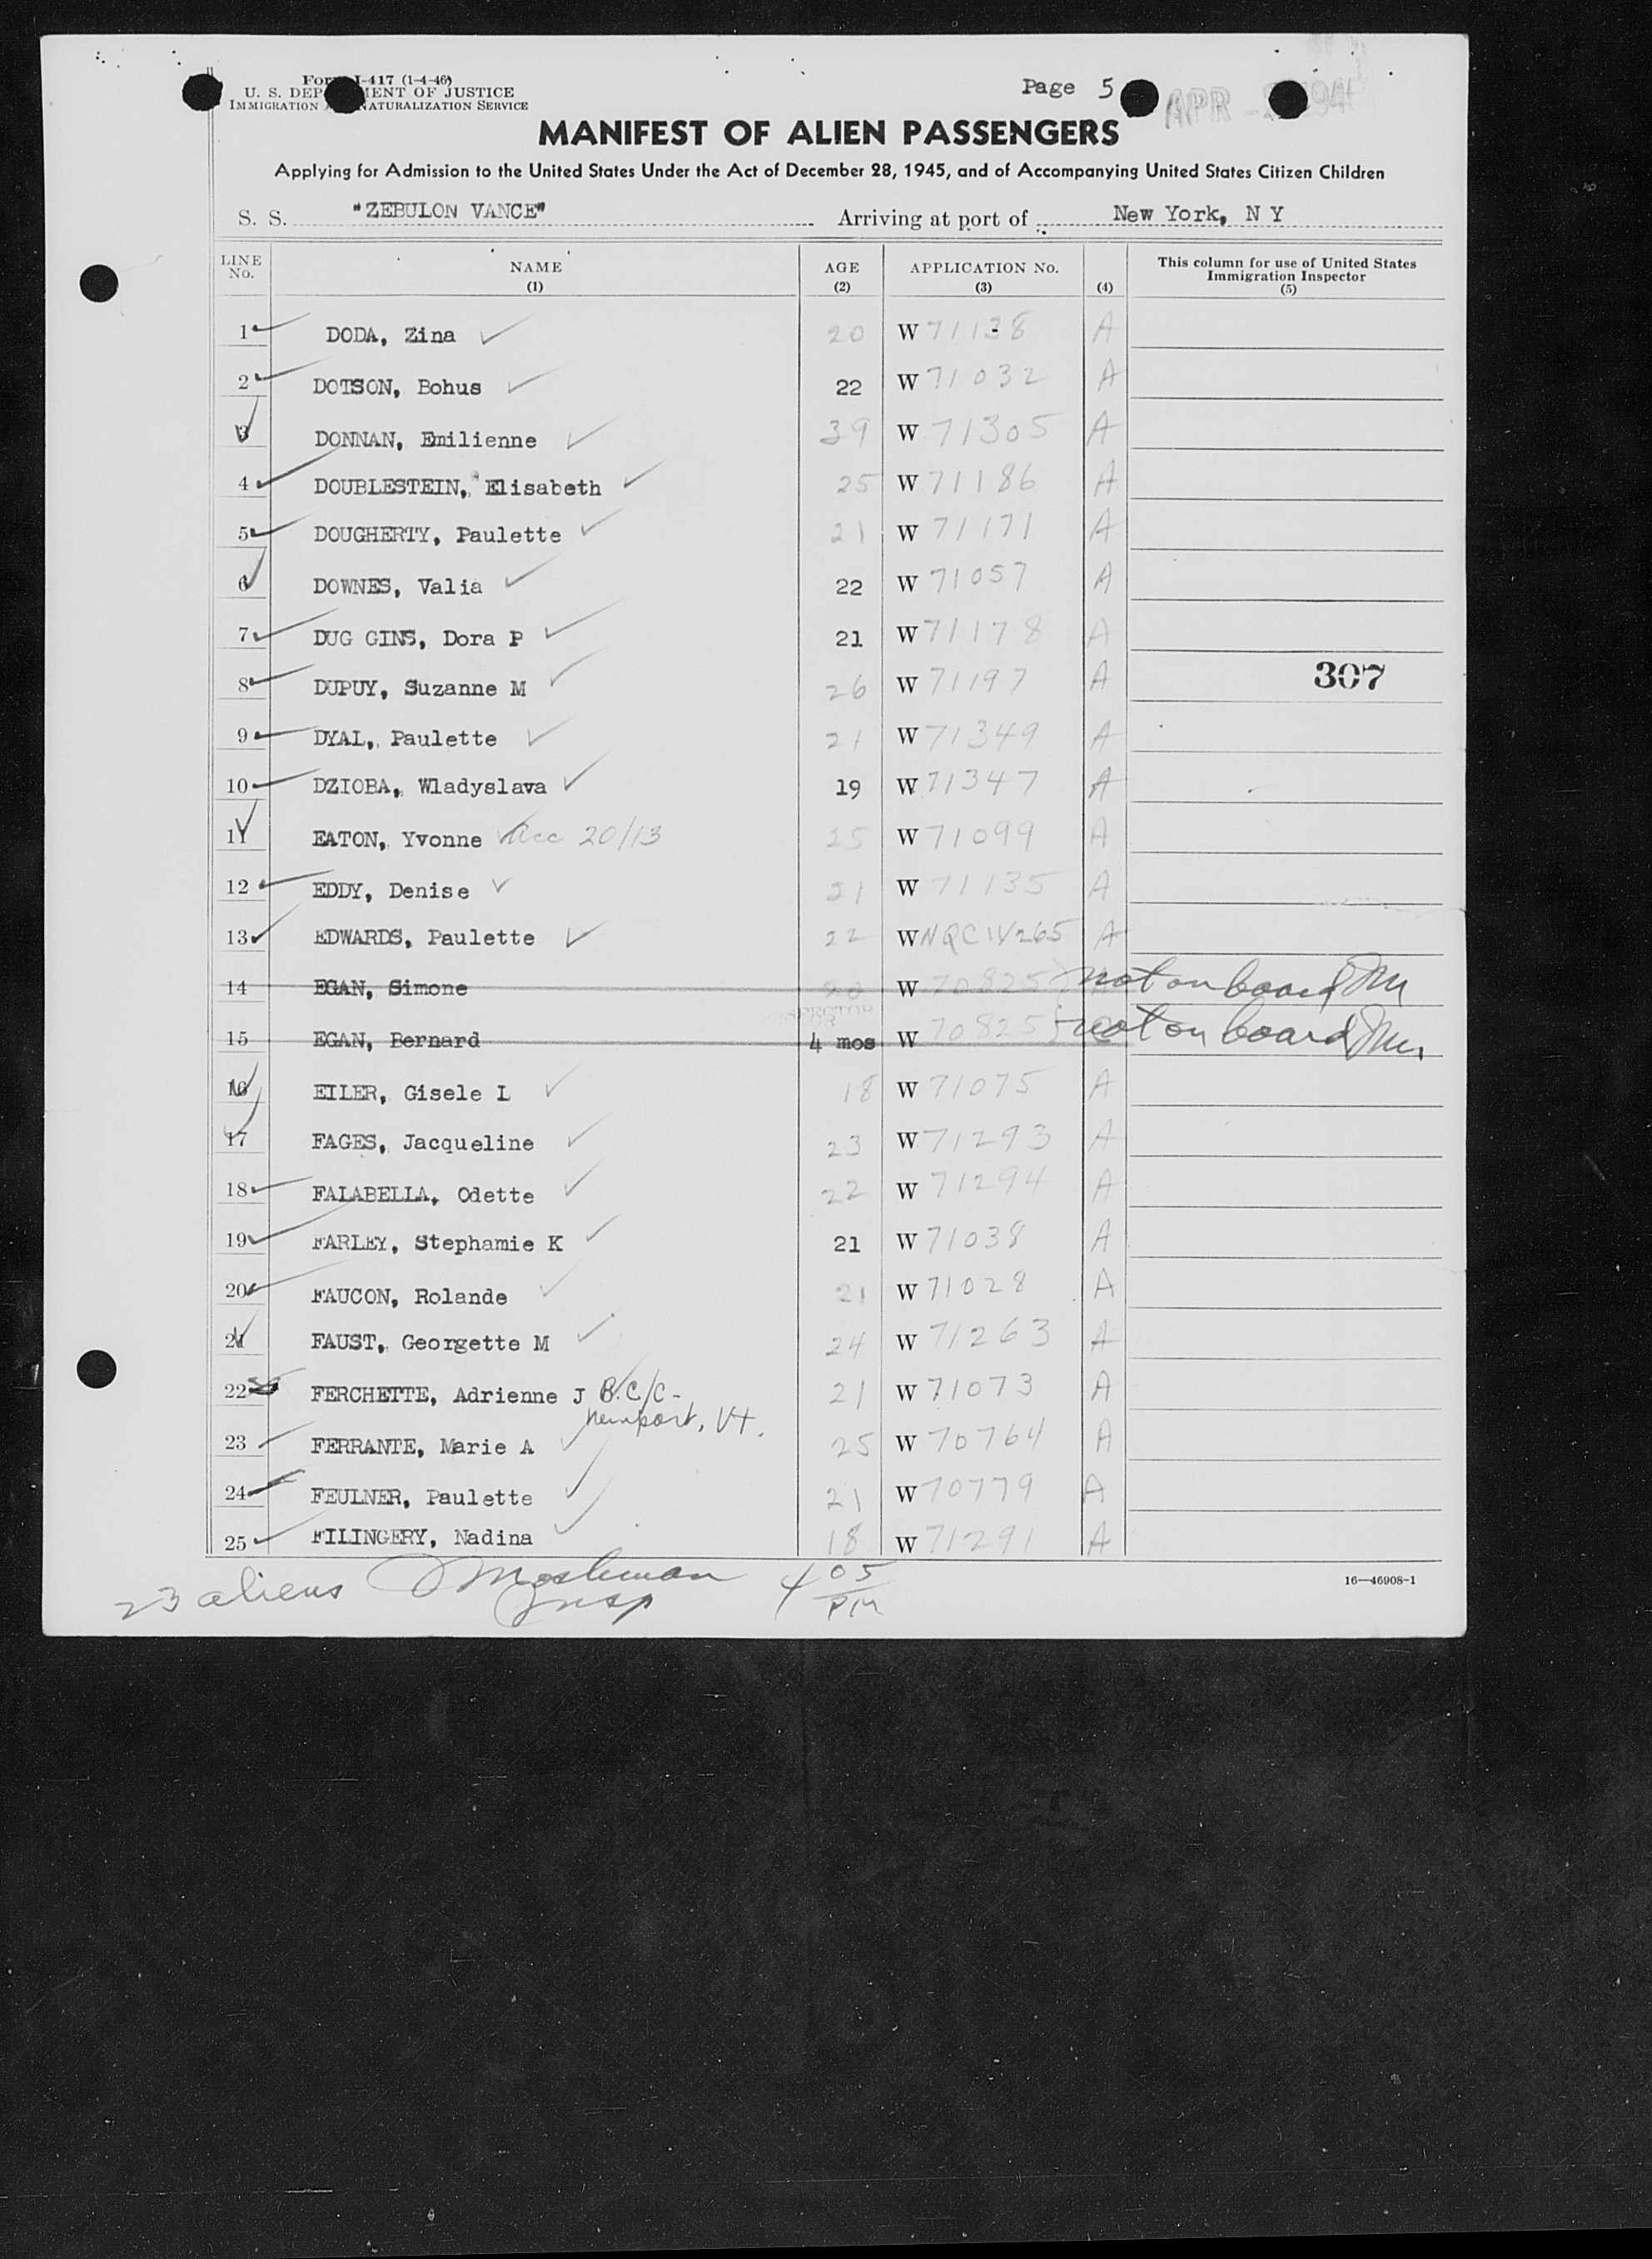 Page 5
Form I-417 (1-4-46)
U. S. DEPARTMENT OF JUSTICE
IMMIGRATION NATURALIZATION SERVICE
APR
MANIFEST OF ALIEN PASSENGERS
Applying for Admission to the United States Under the Act of December 28, 1945, and of Accompanying United States Citizen Children
S. S. "ZEBULON VANCE" Arriving at port of New York, N Y
LINE No. NAME (1) AGE (2) APPLICATION No. (3) (4) This column for use of United States Immigration Inspector (5)
1 DODA, Zina 20 W 71138 A
2 DOTSON, Bohus 22 W 71032 A
3 DONNAN, Emilienne 39 W 71305 A
4 DOUBLESTEIN, Elisabeth 25 W 71186 A
5 DOUGHERTY, Paulette 21 W 71171 A
6 DOWNES, Valia 22 W 71057 A
7 DUG GINS, Dora P 21 W 71178 A
8 DUPUY, Suzanne M 26 W 71197 A 307
9 DYAL, Paulette 21 W 71349 A
10 DZIOBA, Wladyslava 19 W 71347 A
11 EATON, Yvonne Acc 20/13 25 W 71099 A
12 EDDY, Denise 21 W 71135 A
13 EDWARDS, Paulette 22 W NQCIV265 A
14 EGAN, Simone W 70825 not on board
15 EGAN, Bernard 4 mos W 70825 not on board
16 EILER, Gisele L 18 W 71075 A
17 FAGES, Jacqueline 23 W 71293 A
18 FALABELLA, Odette 22 W 71294 A
19 FARLEY, Stephamie K 21 W 71038 A
20 FAUCON, Rolande 21 W 71028 A
21 FAUST, Georgette M 24 W 71263 A
22 FERCHETTE, Adrienne J B.C/C- 21 W 71073 A
Newport, Vt.
23 FERRANTE, Marie A 25 W 70764 A
24 FEULNER, Paulette 21 W 70779 A
25 FILINGERY, Nadina 18 W 71291 A
23 aliens Insp 4 05 PM
16—46908-1